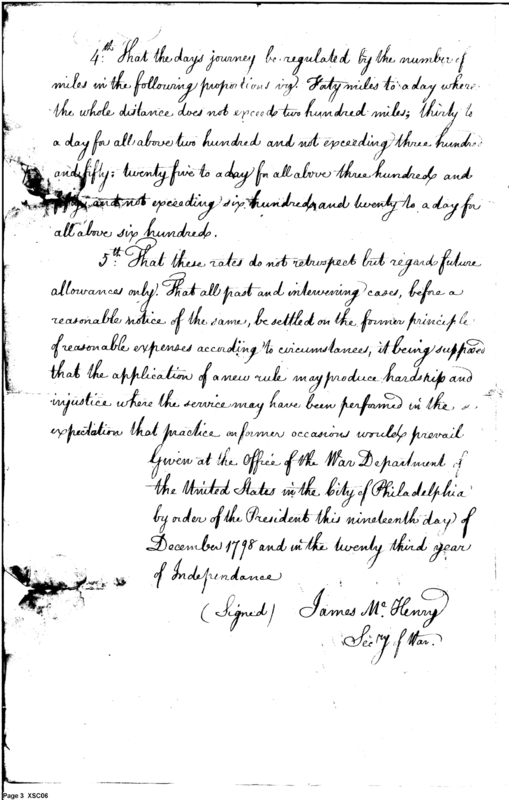 4.th That the days journey be regulated by the number of
miles in the following proportions viz. Forty miles to a day where
the whole distance does not exceed two hundred miles; thirty to
a day for all above two hundred and not exceeding three hundred
and fifty; twenty five to a day for all above three hundred and
and not exceeding six hundred, and twenty to a day for
all above six hundred.
5.th That these rates do not retrospect but regard future
allowances only. That all past and intervening cases, before a
reasonable notice of the same, be settled on the former principle
of reasonable expenses according to circumstances, it being supposed
that the application of a new rule may produce hardship and
injustice where the service may have been performed in the
expectation that practice on former occasions would prevail
Given at the Office of the War Department of
the United States in the City of Philadelphia
by order of the President this nineteenth day of
December 1798 and in the twenty third year
of Independance
(Signed) James Mc.Henry
Secry of War.
Page 3 XSC06